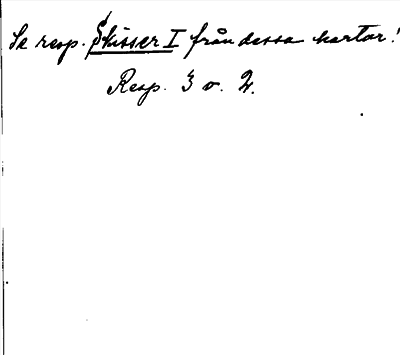 Se resp. Skisser I från dessa kartor!
Resp. 3 o. 2.